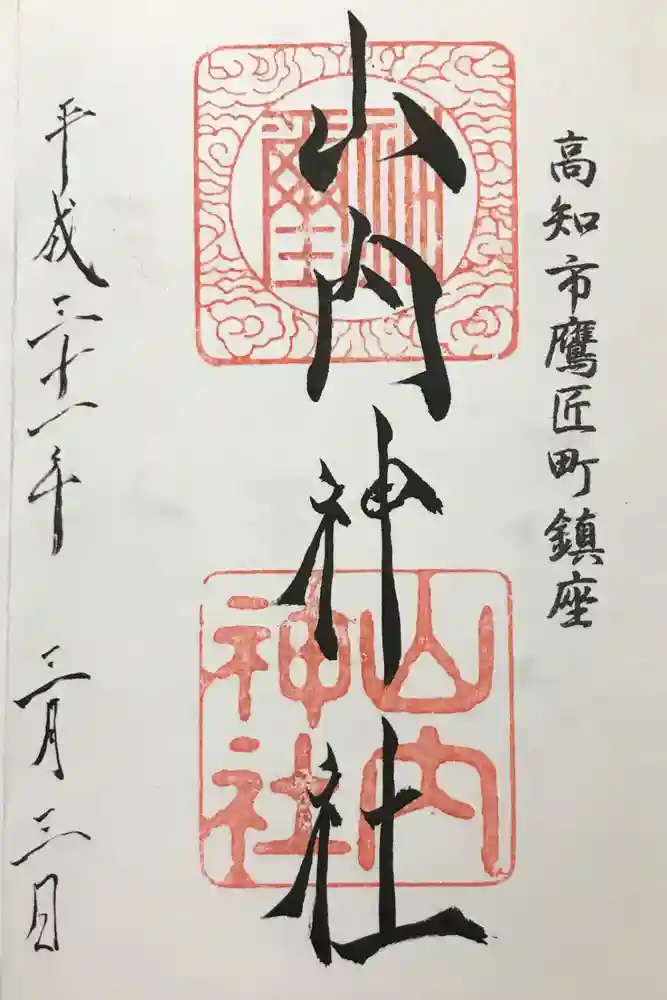 高知市鷹匠町鎮座
山内神社
神璽
山内神社
平成三十一年 三月三日